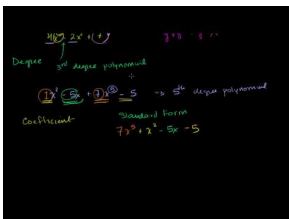 Degree
3rd degree polynomial
1x² - 5x + 7x⁵ - 5 → 5th degree polynomial
Coefficient
Standard Form
7x⁵ + x² - 5x - 5